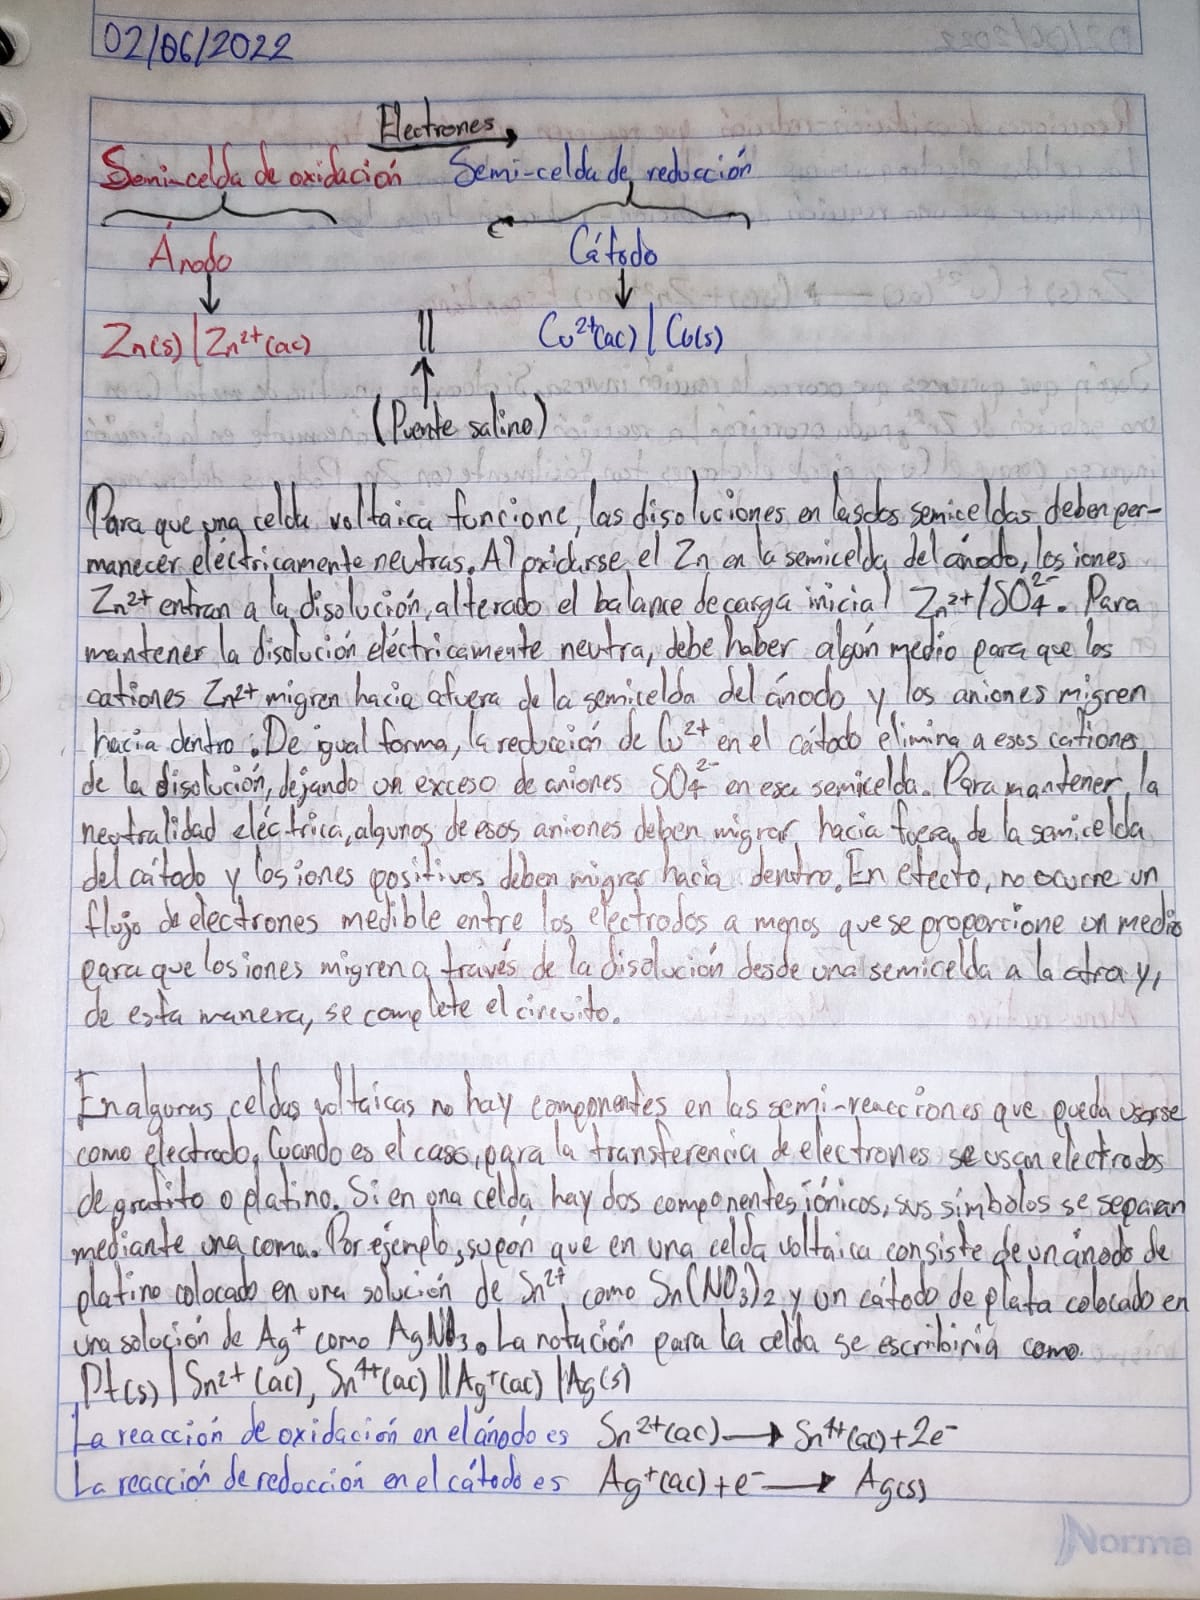 02/06/2022
Electrones
Semi-celda de oxidación Semi-celda de reducción
Ánodo Cátodo
Zn(s) | Zn²⁺(ac) || Cu²⁺(ac) | Cu(s)
(Puente salino)
Para que una celda voltaica funcione, las disoluciones en las dos semiceldas deben per-
manecer eléctricamente neutras. Al oxidarse el Zn en la semicelda del ánodo, los iones
Zn²⁺ entran a la disolución, alterado el balance de carga inicial Zn²⁺/SO₄²⁻. Para
mantener la disolución eléctricamente neutra, debe haber algún medio para que los
cationes Zn²⁺ migren hacia afuera de la semicelda del ánodo y los aniones migren
hacia dentro. De igual forma, la reducción de Cu²⁺ en el cátodo elimina a esos cationes
de la disolución, dejando un exceso de aniones SO₄²⁻ en esa semicelda. Para mantener la
neutralidad eléctrica, algunos de esos aniones deben migrar hacia fuera de la semicelda
del cátodo y los iones positivos deben migrar hacia dentro. En efecto, no ocurre un
flujo de electrones medible entre los electrodos a menos que se proporcione un medio
para que los iones migren a través de la disolución desde una semicelda a la otra y,
de esta manera, se complete el circuito.
En algunas celdas voltaicas no hay componentes en las semi-reacciones que pueda usarse
como electrodo. Cuando es el caso, para la transferencia de electrones se usan electrodos
de grafito o platino. Si en una celda hay dos componentes iónicos, sus símbolos se separan
mediante una coma. Por ejemplo, supón que en una celda voltaica consiste de un ánodo de
platino colocado en una solución de Sn²⁺ como Sn(NO₃)₂ y un cátodo de plata colocado en
una solución de Ag⁺ como AgNO₃. La notación para la celda se escribiría como
Pt(s) | Sn²⁺(ac), Sn⁴⁺(ac) || Ag⁺(ac) | Ag(s)
La reacción de oxidación en el ánodo es Sn²⁺(ac) → Sn⁴⁺(ac) + 2e⁻
La reacción de reducción en el cátodo es Ag⁺(ac) + e⁻ → Ag(s)
Norma